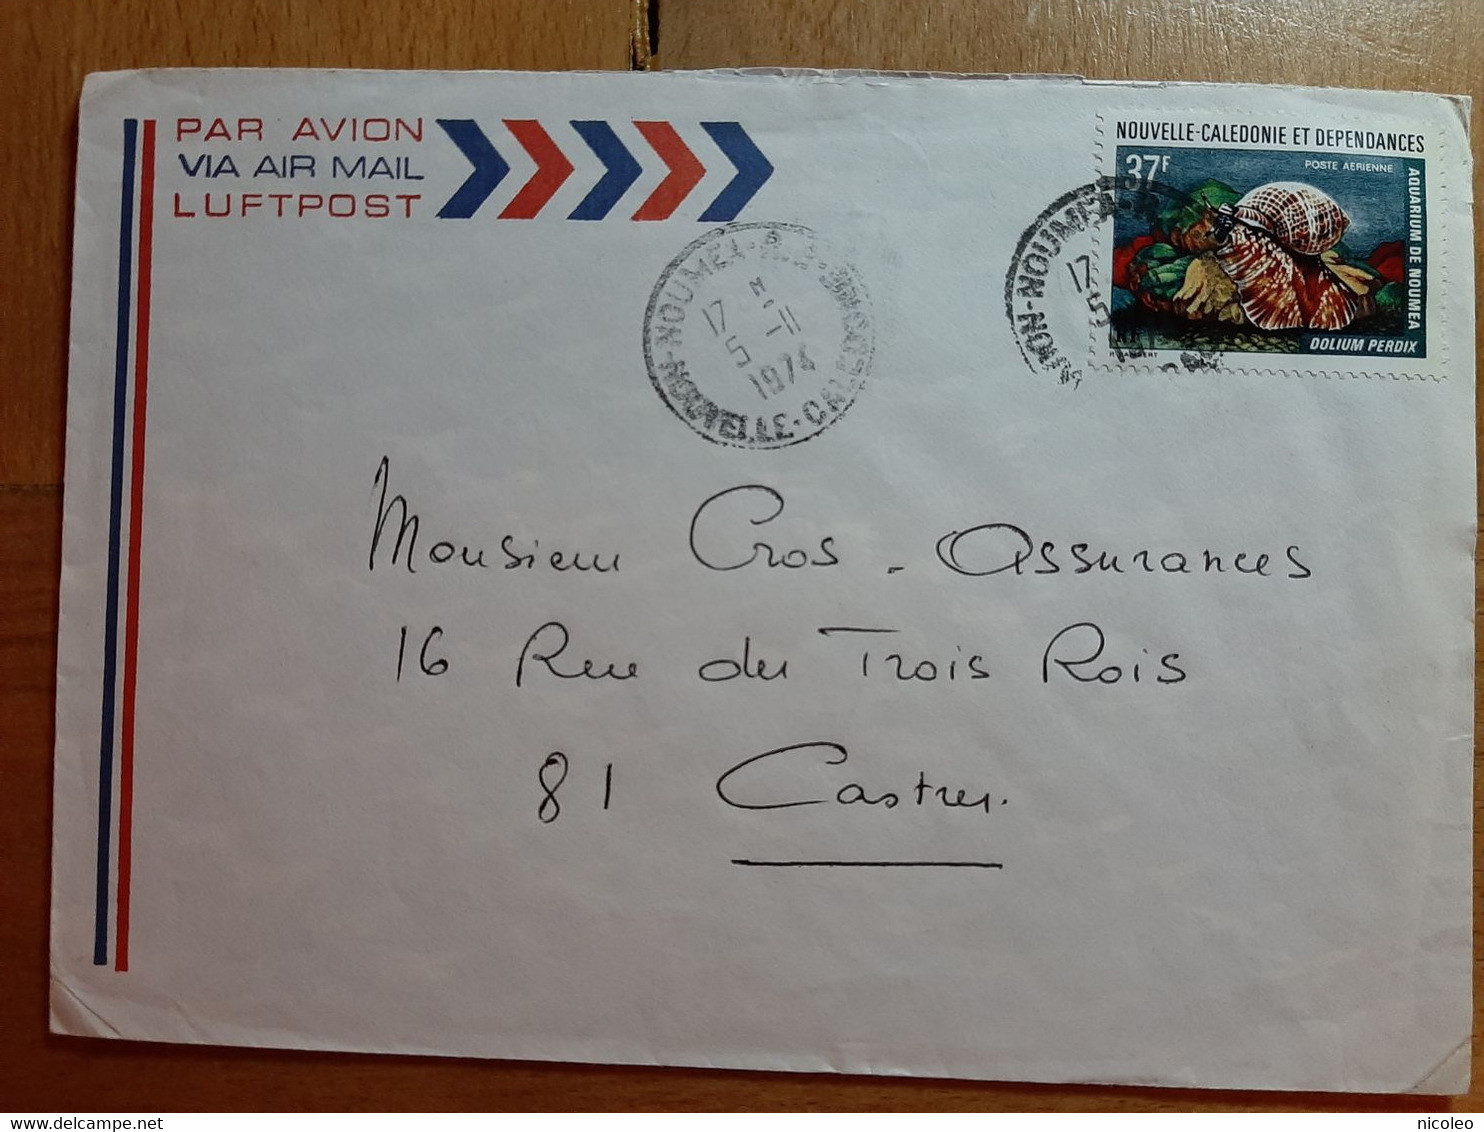 PAR AVION
VIA AIR MAIL
LUFTPOST
NOUVELLE-CALEDONIE ET DEPENDANCES
37F
POSTE AERIENNE
AQUARIUM DE NOUMEA
DOLIUM PERDIX
NOUMEA
17
5
1974
NOUVELLE-CALEDONIE
NOUMEA
17
5
Monsieur Cros - Assurances
16 Rue des Trois Rois
81 Castres.
nicoleo